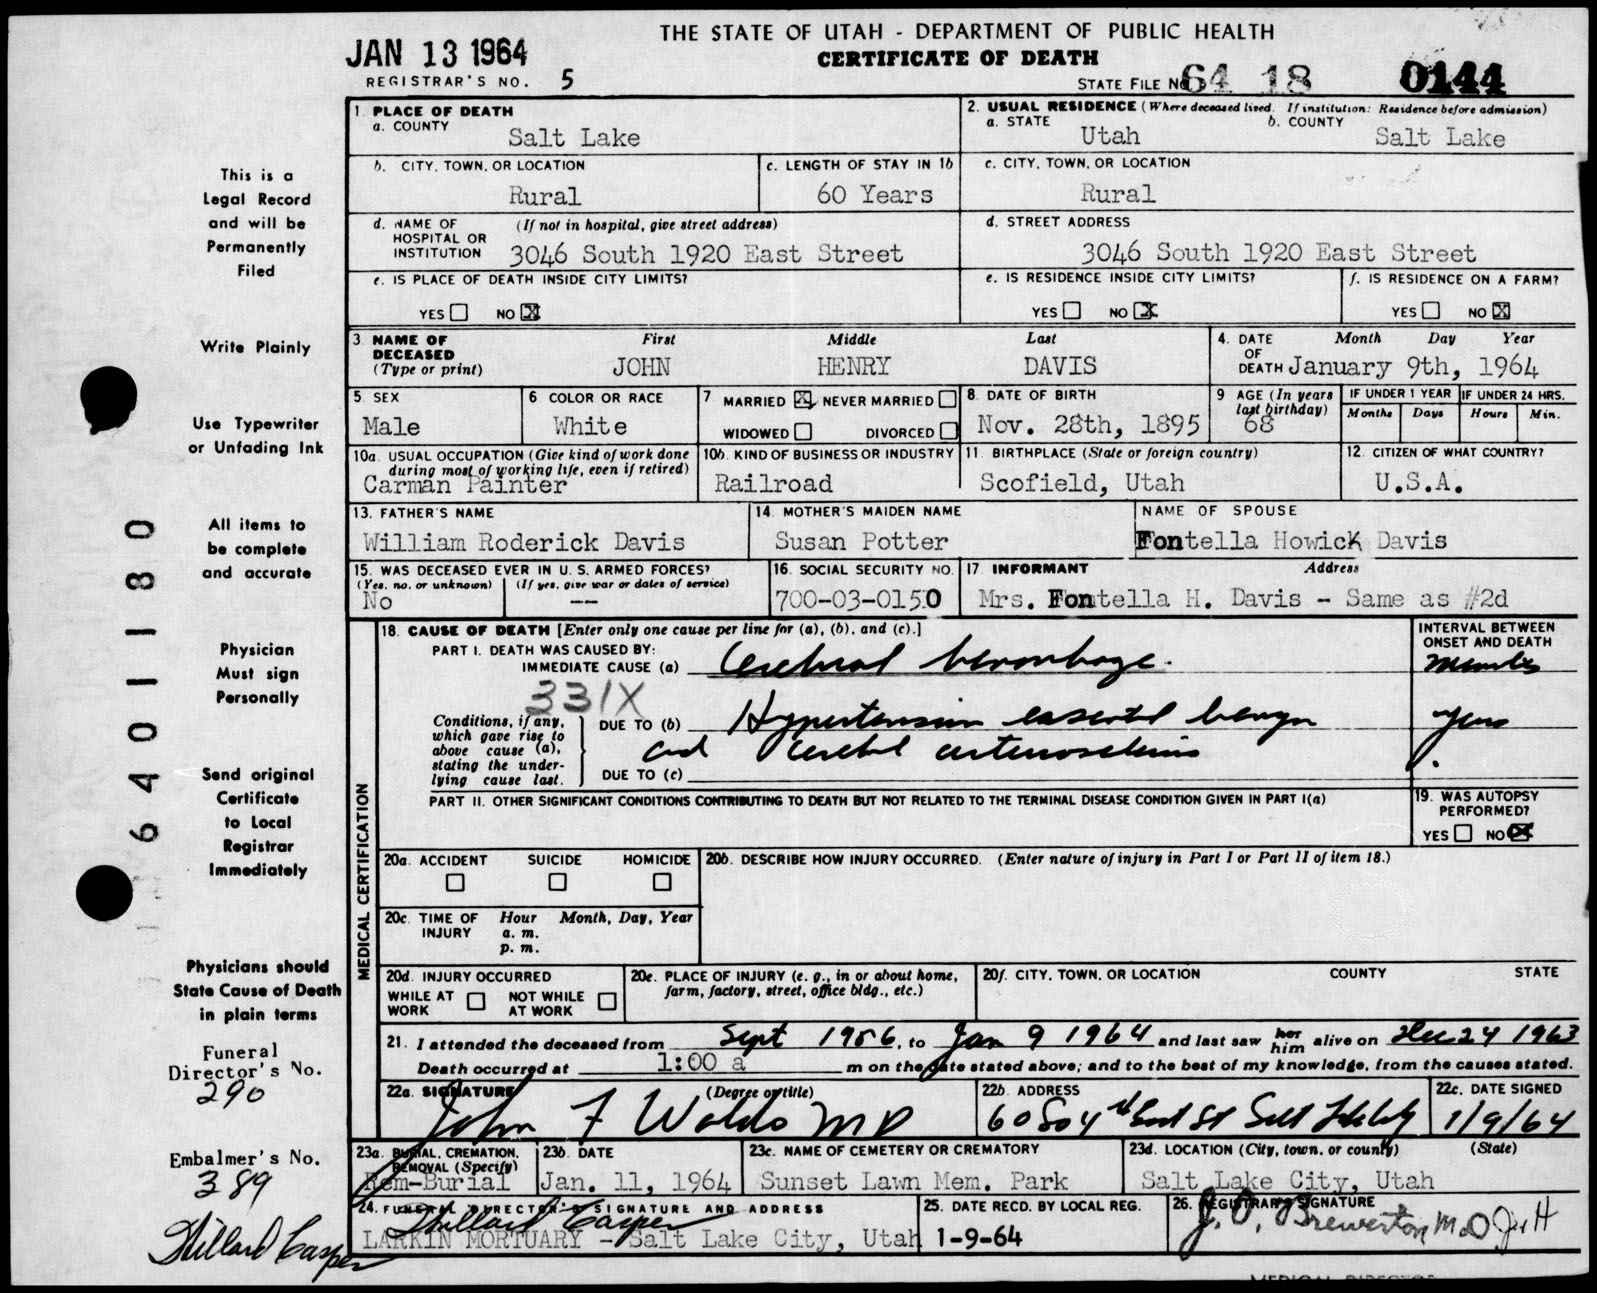 THE STATE OF UTAH - DEPARTMENT OF PUBLIC HEALTH
CERTIFICATE OF DEATH
JAN 13 1964
REGISTRAR'S NO. 5
STATE FILE NO. 64 18 0144
1. PLACE OF DEATH
a. COUNTY
Salt Lake
2. USUAL RESIDENCE (Where deceased lived. If institution: Residence before admission)
a. STATE
Utah
b. COUNTY
Salt Lake
b. CITY, TOWN, OR LOCATION
Rural
c. LENGTH OF STAY IN 1b
60 Years
c. CITY, TOWN, OR LOCATION
Rural
d. NAME OF HOSPITAL OR INSTITUTION
(If not in hospital, give street address)
3046 South 1920 East Street
d. STREET ADDRESS
3046 South 1920 East Street
e. IS PLACE OF DEATH INSIDE CITY LIMITS?
YES NO X
e. IS RESIDENCE INSIDE CITY LIMITS?
YES NO X
f. IS RESIDENCE ON A FARM?
YES NO X
3. NAME OF DECEASED
(Type or print)
First Middle Last
JOHN HENRY DAVIS
4. DATE OF DEATH
Month Day Year
January 9th, 1964
5. SEX
Male
6 COLOR OR RACE
White
7 MARRIED X NEVER MARRIED
WIDOWED DIVORCED
8. DATE OF BIRTH
Nov. 28th, 1895
9 AGE (In years last birthday)
68
IF UNDER 1 YEAR
Months Days
IF UNDER 24 HRS.
Hours Min.
10a. USUAL OCCUPATION (Give kind of work done during most of working life, even if retired)
Carman Painter
10b. KIND OF BUSINESS OR INDUSTRY
Railroad
11. BIRTHPLACE (State or foreign country)
Scofield, Utah
12. CITIZEN OF WHAT COUNTRY?
U.S.A.
13. FATHER'S NAME
William Roderick Davis
14. MOTHER'S MAIDEN NAME
Susan Potter
NAME OF SPOUSE
Fontella Howick Davis
15. WAS DECEASED EVER IN U. S. ARMED FORCES?
(Yes, no, or unknown) (If yes, give war or dates of service)
No --
16. SOCIAL SECURITY NO.
700-03-0150
17. INFORMANT Address
Mrs. Fontella H. Davis - Same as #2d
18. CAUSE OF DEATH [Enter only one cause per line for (a), (b), and (c).]
PART I. DEATH WAS CAUSED BY:
IMMEDIATE CAUSE (a) Cerebral hemorrhage.
INTERVAL BETWEEN ONSET AND DEATH
331X
Conditions, if any, which gave rise to above cause (a), stating the underlying cause last.
DUE TO (b) Hypertension essential benign
and cerebral arteriosclerosis
DUE TO (c)
PART II. OTHER SIGNIFICANT CONDITIONS CONTRIBUTING TO DEATH BUT NOT RELATED TO THE TERMINAL DISEASE CONDITION GIVEN IN PART I(a)
19. WAS AUTOPSY PERFORMED?
YES NO X
MEDICAL CERTIFICATION
20a. ACCIDENT SUICIDE HOMICIDE
20b. DESCRIBE HOW INJURY OCCURRED. (Enter nature of injury in Part I or Part II of item 18.)
20c. TIME OF INJURY Hour Month, Day, Year
a. m.
p. m.
20d. INJURY OCCURRED
WHILE AT WORK NOT WHILE AT WORK
20e. PLACE OF INJURY (e. g., in or about home, farm, factory, street, office bldg., etc.)
20f. CITY, TOWN, OR LOCATION COUNTY STATE
21. I attended the deceased from Sept 1956, to Jan 9 1964 and last saw her him alive on Dec 24 1963
Death occurred at 1:00 a m on the date stated above; and to the best of my knowledge, from the causes stated.
22a. SIGNATURE (Degree or title)
John F Waldo MD
22b. ADDRESS
60 So 4th East St Salt Lake City
22c. DATE SIGNED
1/9/64
23a. BURIAL, CREMATION, REMOVAL (Specify)
Rem-Burial
23b. DATE
Jan. 11, 1964
23c. NAME OF CEMETERY OR CREMATORY
Sunset Lawn Mem. Park
23d. LOCATION (City, town, or county) (State)
Salt Lake City, Utah
24. FUNERAL DIRECTOR'S SIGNATURE AND ADDRESS
Dillard Casper
LARKIN MORTUARY - Salt Lake City, Utah
25. DATE RECD. BY LOCAL REG.
1-9-64
26. REGISTRAR'S SIGNATURE
J. O. Brewerton M.D.
This is a
Legal Record
and will be
Permanently
Filed
Write Plainly
Use Typewriter
or Unfading Ink
All items to
be complete
and accurate
Physician
Must sign
Personally
Send original
Certificate
to Local
Registrar
Immediately
Physicians should
State Cause of Death
in plain terms
Funeral
Director's No.
290
Embalmer's No.
389
Dillard Casper
6401180